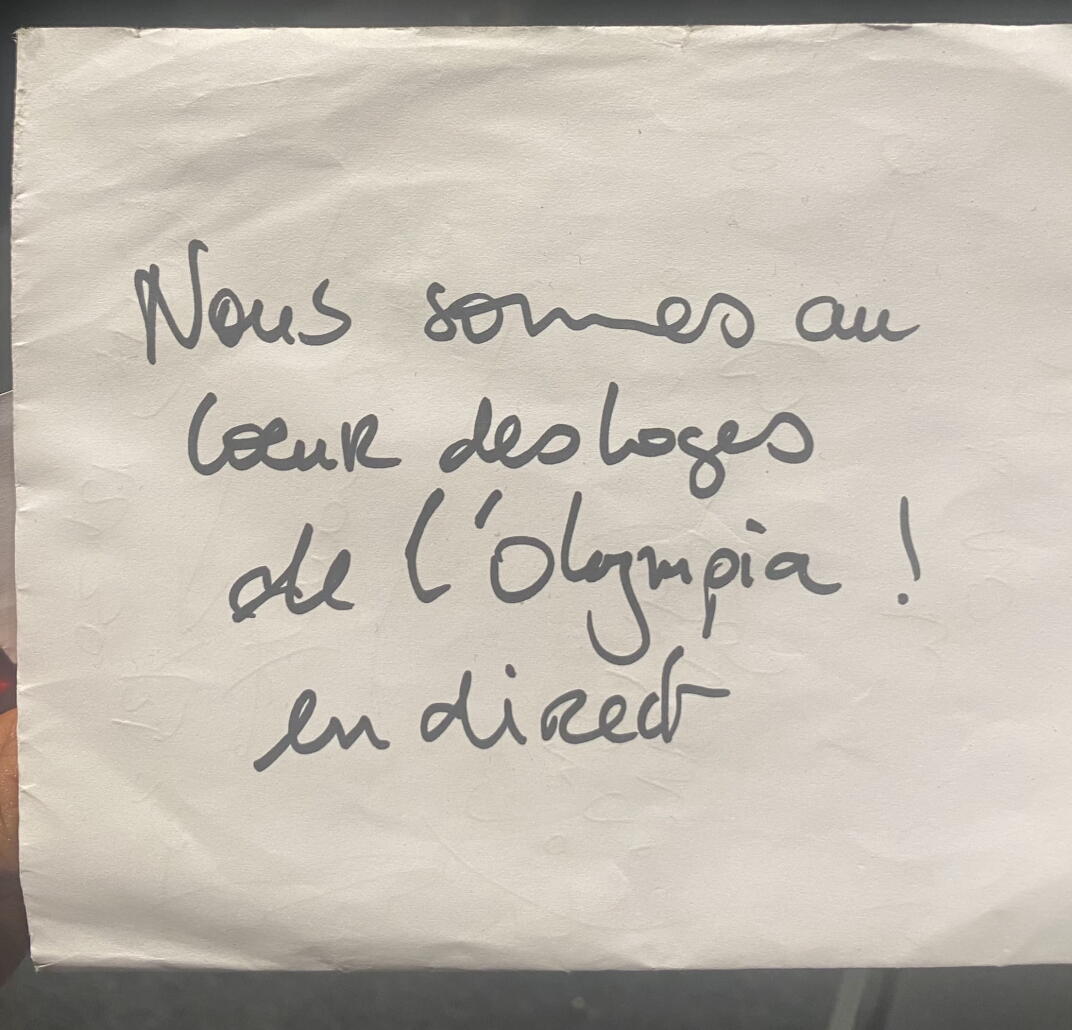 Nous sommes au
cœur des loges
de l'Olympia !
en direct